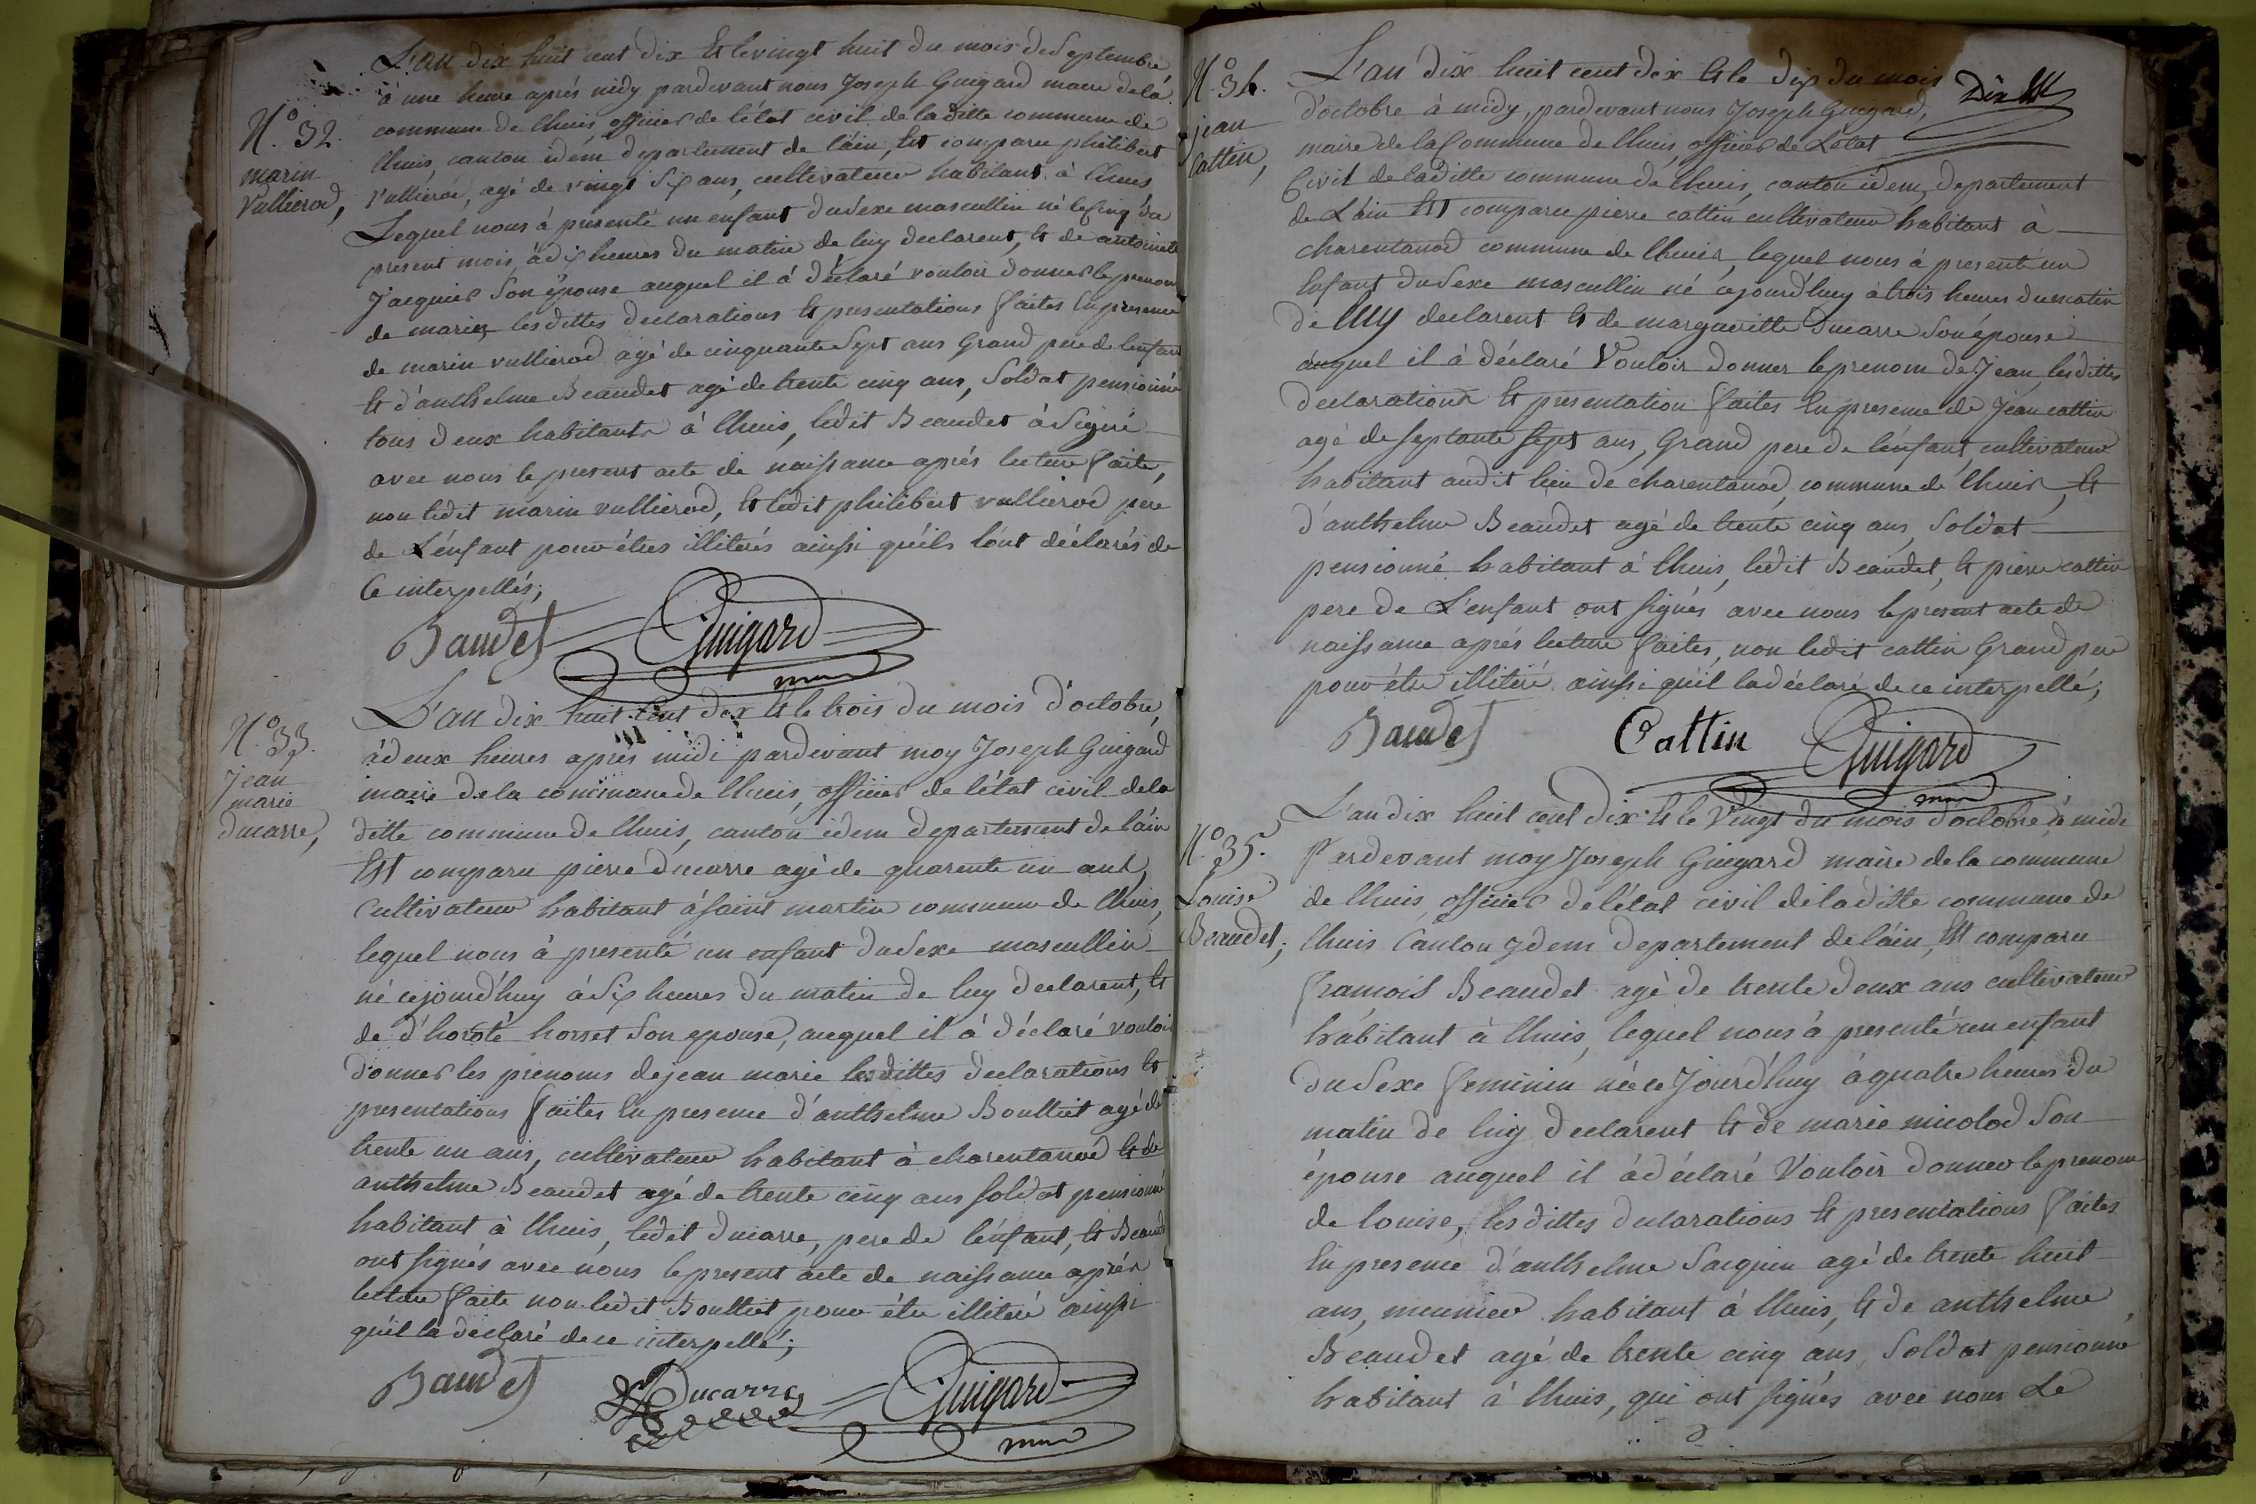 L'an dix huit cent dix Et le vingt huit du mois de Septembre
à une heure aprés midy pardevant nous Joseph Guigard maire de la
N.° 32.
marin
Vullierod,
commune de lhuis, officier de l'état civil de la ditte commune de
lhuis, canton idem departement de l'ain, Est comparu philibert
Vullierod, agé de vingt six ans, cultivateur habitant à lhuis
Lequel nous à presenté un enfant du Sexe mascullin né le cinq du
present mois, à dix heures du matin de luy declarent, Et de antoinette
Jacquier Son épouse auquel il à déclaré vouloir donner le prenom
de marin, les dittes declarations Et presentations faites En presence
de marin vullierod agé de cinquante Sept ans Grand pere de l'enfant
Et d'anthelme Beaudet agé de trente cinq ans, Soldat pensionné
tous deux habitants à lhuis, ledit Beaudet à Signé
avec nous le present acte de naissance aprés lecture faite,
non ledit marin vullierod, Et ledit philibert vullierod pere
de L'enfant pour étres illiterés ainssi qu'ils l'ont déclarés de
Ce interpellés;
Baudet Guigard
maire
N.° 33.
Jean
marie
ducarre,
L'an dix huit cent dix Et le trois du mois d'octobre,
à deux heures aprés midi pardevant moy Joseph Guigard
maire de la commune de lhuis, officier de l'état civil de la
ditte commune de lhuis, canton idem departement de l'ain
Est comparu pierre ducarre agé de quarente un ans,
Cultivateur habitant à saint martin commune de lhuis,
lequel nous à presenté un enfant du Sexe mascullin
né cejourd'huy à Six heures du matin de luy declarent, Et
de d'horoté horset Son epouse, auquel il à déclaré vouloir
donner les prenoms de jean marie les dittes declarations Et
presentations faites En presence d'anthelme Boulliet agé de
trente un ans, cultivateur habitant à charentanod Et de
anthelme Beaudet agé de trente cinq ans soldat pensionné
habitant à lhuis, ledit ducarre, pere de l'enfant, Et Beaudet
ont signés avec nous le present acte de naissance aprés
lecture faite non ledit Boulliet pour étre illiteré ainssi
qu'il la déclaré de ce interpellé;
Baudet Ducarre Guigard
maire
N.° 34.
jean
cattin,
L'an dix huit cent dix Et le dix du mois
d'octobre à midy, pardevant nous Joseph Guigard,
maire de la Commune de lhuis, officier de L'état
Civil de laditte commune de lhuis, canton idem, departement
de L'ain Est comparu pierre cattin cultivateur habitant à
charentanod commune de lhuis, lequel nous à presenté un
Enfant du Sexe mascullin né cejourd'huy à trois heures du matin
de luy declarent Et de margueritte Ducarre Son épouse
auquel il à déclaré Vouloir donner le prenom de Jean, les dittes
declarations Et presentation faites En presence de Jean cattin
agé de septante sept ans, Grand pere de l'enfant cultivateur
habitant audit lieu de charentanod, commune de lhuis, Et
d'anthelme Beaudet agé de trente cinq ans, Soldat
pensionné habitant à lhuis, ledit Beaudet, Et pierre cattin
pere de L'enfant ont signés avec nous le present acte de
naissance aprés lecture faites, non ledit cattin Grand pere
pour étre illiteré ainssi qu'il la déclaré de ce interpellé;
Baudet Cattin Guigard
maire
N.° 35.
Louise
Beaudet,
L'an dix huit cent dix Et le Vingt du mois d'octobre à midi
Pardevant moy Joseph Guigard maire de la commune
de lhuis, officier de l'état civil de laditte commune de
lhuis Canton ydem departement de l'ain, Est comparu
françois Beaudet agé de trente deux ans cultivateur
habitant à lhuis, lequel nous à presenté un enfant
du Sexe feminin née ce Jourd'huy à quatre heures du
matin de luy declarent Et de marie micolod Son
épouse auquel il à déclaré Vouloir donner le prenom
de louise, les dittes declarations Et presentations faites
En presence d'anthelme Jacquin agé de trente huit
ans, meunier habitant à lhuis, Et de anthelme
Beaudet agé de trente cinq ans, Soldat pensionné
habitant à lhuis, qui ont signés avec nous Le